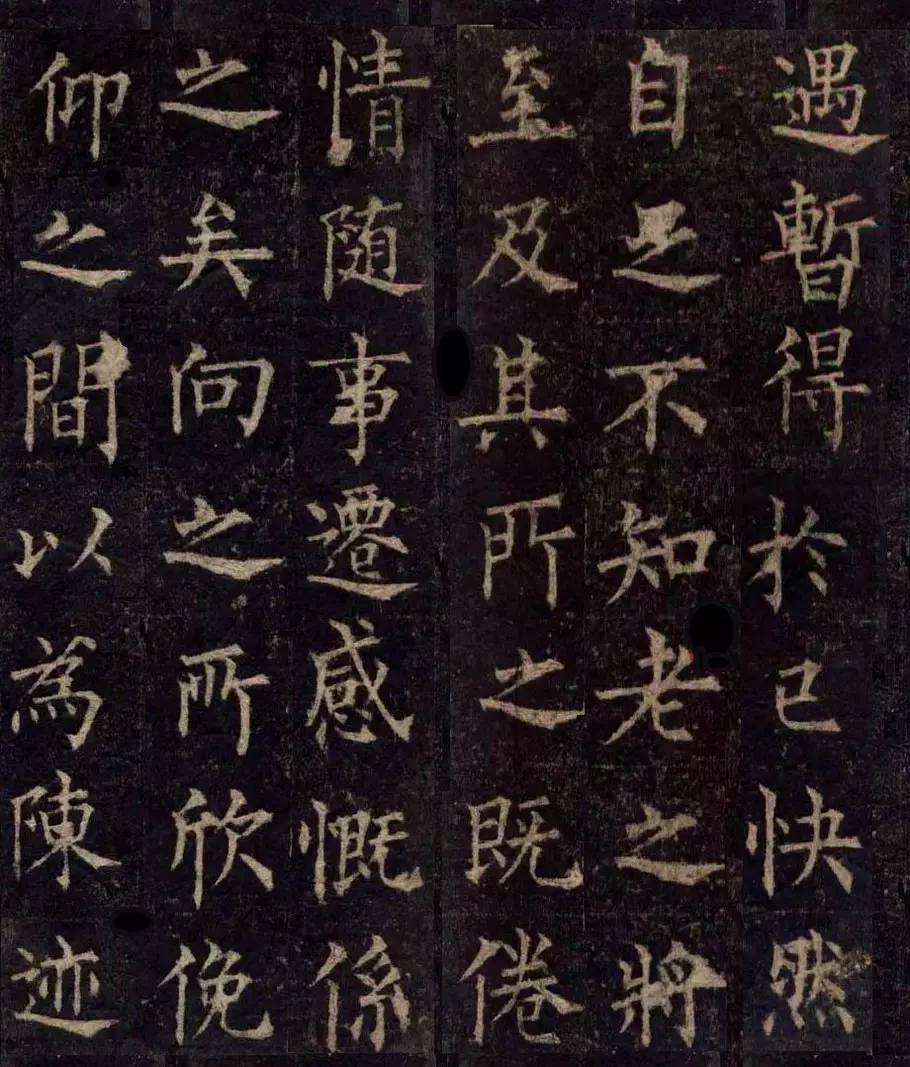 遇暫得於己快然
自足不知老之將
至及其所之既倦
情随事遷感慨係
之矣向之所欣俛
仰之間以為陳迹